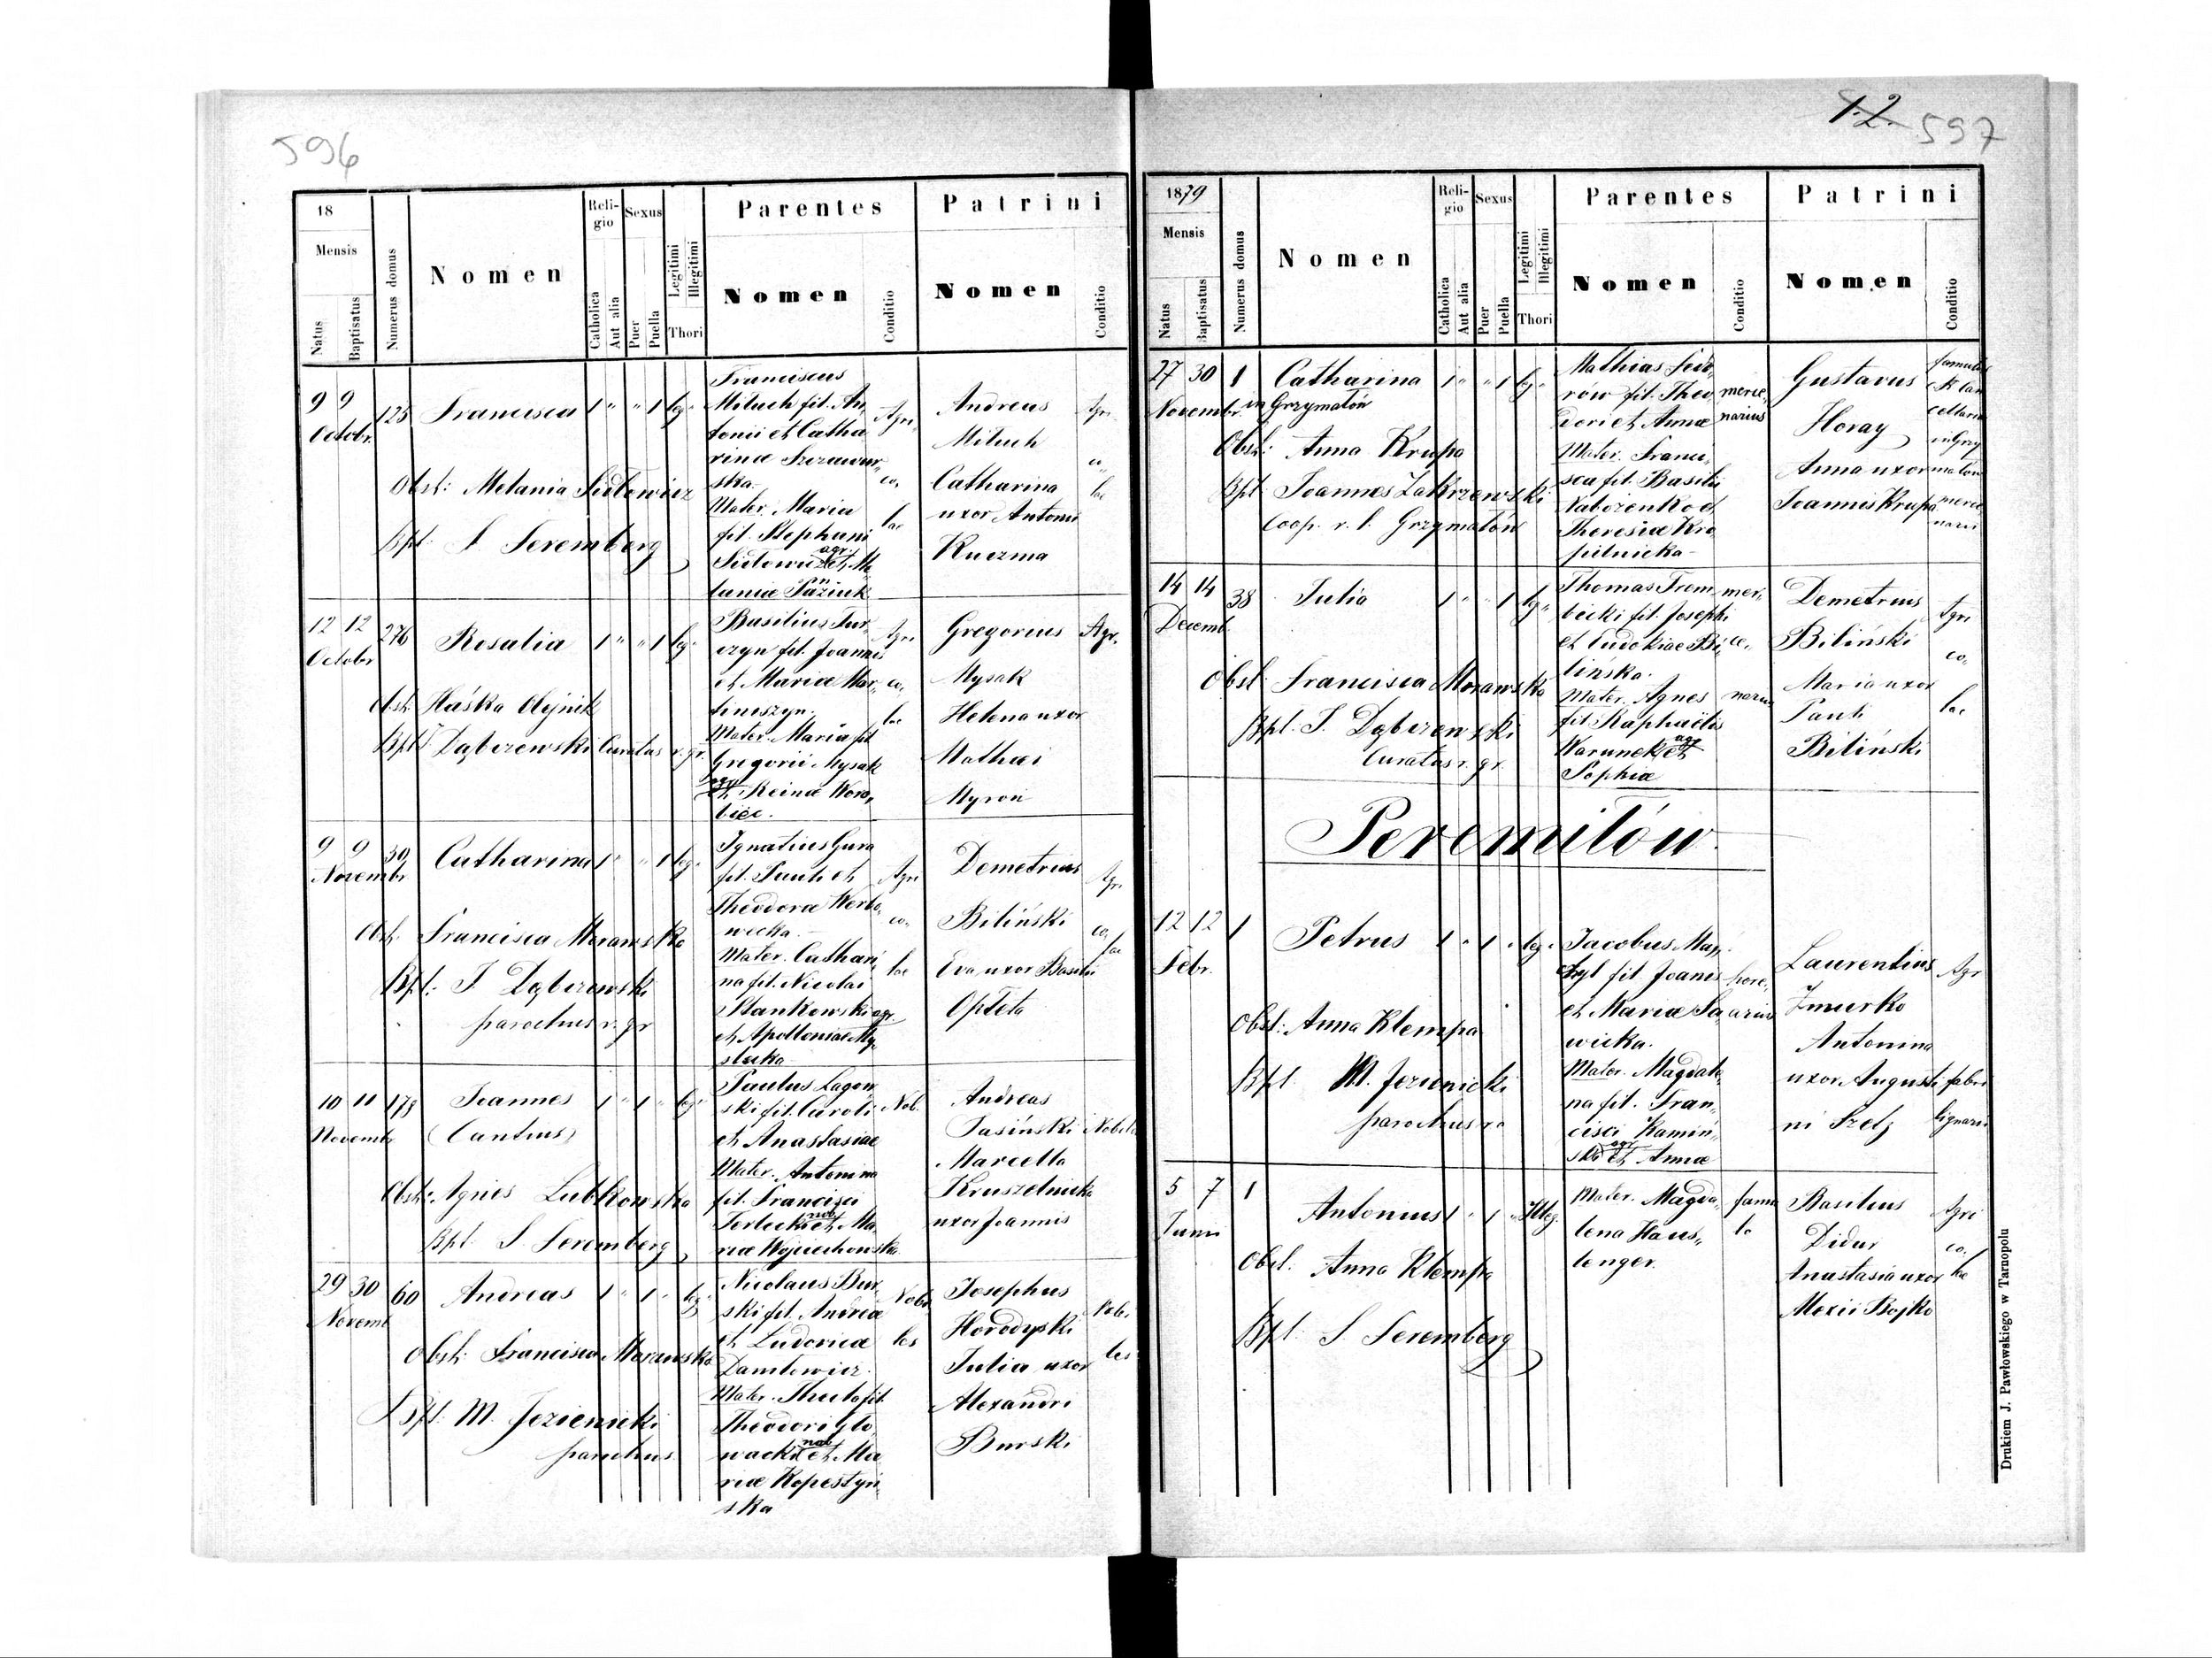 596
18
Mensis
Natus
Baptisatus
Numerus domus
Nomen
Religio
Catholica
Aut alia
Sexus
Puer
Puella
Legitimi
Illegitimi
Thori
Parentes
Nomen
Conditio
Patrini
Nomen
Conditio
9 9 125 Francisca 1 " " 1 leg.
Octobr.
Obst: Melania Sidlowicz
Bpt. S Seremberg
Franciscus
Miluch fil. An
tonii et Catha
rinae
ska.
Mater. Maria
fil. Stephani
agr.
et Me
laniae
Agri
co
lae
Andreas
Miluch
Catharina
uxor Antonii
Kuczma
Agri
co
lae
12 12 276 Rosalia 1 " " 1 leg.
Octobr
Obst. Haśka Olejnik
Bpt. J Dąbczewski Curatus r. gr.
Basilius Tur
czyn fil. Joannis
et Mariae Mar
teniszyn.
Mater. Maria fil
Gregorii Mysak
agr
et Reinae Woro
biec.
Agri
co
lae
Gregorius
Mysak
Helena uxor
Mathaei
Myron
Agr.
9 9 30 Catharina 1 " " 1 leg.
Novembr
Obst. Francisca Morawska
Bpt: J Dąbczewski
parochus r. gr
Ignatius Gura
fil. Pauli et
Theodorae Werbo
wecka
Mater. Cathari
na fil. Nicolai
Stankowski agr.
et Apolloniae My
sluka
Agri
co
lae
Demetrius
Biliński
Eva uxor Basilii
Opteta
Agri
co
lae
10 11 178 Joannes 1 " 1 " leg.
Novemb (Cantius)
Obst: Agnes Lubkowska
Bpt. S. Seremberg
Paulus Lagow
ski fil. Caroli
et Anastasiae
Mater. Antonina
fil. Francisci
nob
Terlecki et Ma
riae Wojciechowska
Nob.
Andreas
Jasiński
Marcella
Kruszelnicka
uxor Joannis
Nobiles
29 30 60 Andreas 1 " 1 " leg.
Novemb
Obst: Francisca Morawska
Bpt. M. Jezienicki
parochus
Nicolaus Bur
ski fil. Andreae
et Ludovicae
Danilowicz.
Mater. Thecla fil.
Theodori Glo
nob
wacki et Ma
riae Kopestyń
ska
Nobi
les
Josephus
Horodyski
Julia uxor
Alexandri
Burski
Nobi
les
12. 597
1879
Mensis
Natus
Baptisatus
Numerus domus
Nomen
Religio
Catholica
Aut alia
Sexus
Puer
Puella
Legitimi
Illegitimi
Thori
Parentes
Nomen
Conditio
Patrini
Nomen
Conditio
27 30 1 Catharina 1 " " 1 leg.
Novembr. in Grzymałów
Obst: Anna Krupa
Bpt Joannes Zakrzewski
Coop. r. l. Grzymałów
Mathias
rów fil. Theo
dori et Annae
Mater. Franci
sca fil. Basilii
Nabożenko et
Theresiae Kro
pilnicka
merce
narius
Gustavus
Horay
Anna uxor
Joannis Krupa
famulus
in Grzy
małów
merce
narii
14 14 38 Julia 1 " " 1 leg.
Decemb.
Obst Francisca Morawska
Bpt. J. Dąbczewski
Curatus r. gr.
Thomas Trem
becki fil. Josephi
et Eudokiae Bi
lińska.
Mater. Agnes
fil. Raphaelis
agr
Warunek et
Sophiae
mer
ce
narius
Demetrius
Biliński
Maria uxor
Pauli
Biliński
Agri
co
lae
Peremiłów
12 12 1 Petrus 1 " 1 " leg.
Febr.
Obst: Anna Klempa
Bpt M. Jezienicki
parochus
Jacobus
fil Joanis
et Mariae Sa
wicka.
Mater. Magdale
na fil. Fran
cisci Kamiń
agr
ski et Annae
Laurentius
Żmurko
Antonina
uxor Augusti
ni Szelz
Agr
fabri
lignarii
5 7 1 Antonius 1 " 1 " Illeg.
Junii
Obst. Anna Klempa
Bpt S. Seremberg
Mater. Magda
lena Haus
lenger.
famu
la
Basilius
Didur
Anastasia uxor
Alexii Bojko
Agri
co
lae
Drukiem J. Pawłowskiego w Tarnopolu